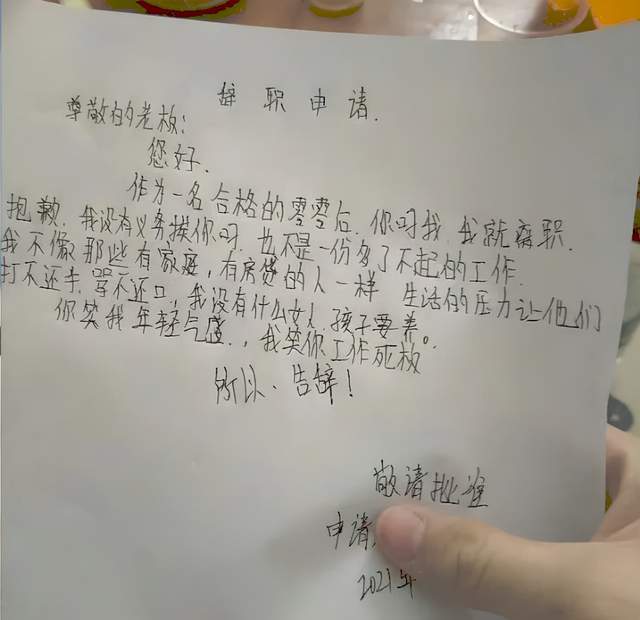 辞职申请.
尊敬的老板:
您好.
作为一名合格的零零后.你呵我.我就离职.
抱歉.我没有义务挨你呵.也不是一份多了不起的工作.
我不像那些有家庭,有房贷的人一样 生活的压力让他们
打不还手.骂不还口,我没有什么女人.孩子要养.
你笑我年轻气盛.,我笑你工作死板。
所以、告辞!
敬请批准
申请
2021年